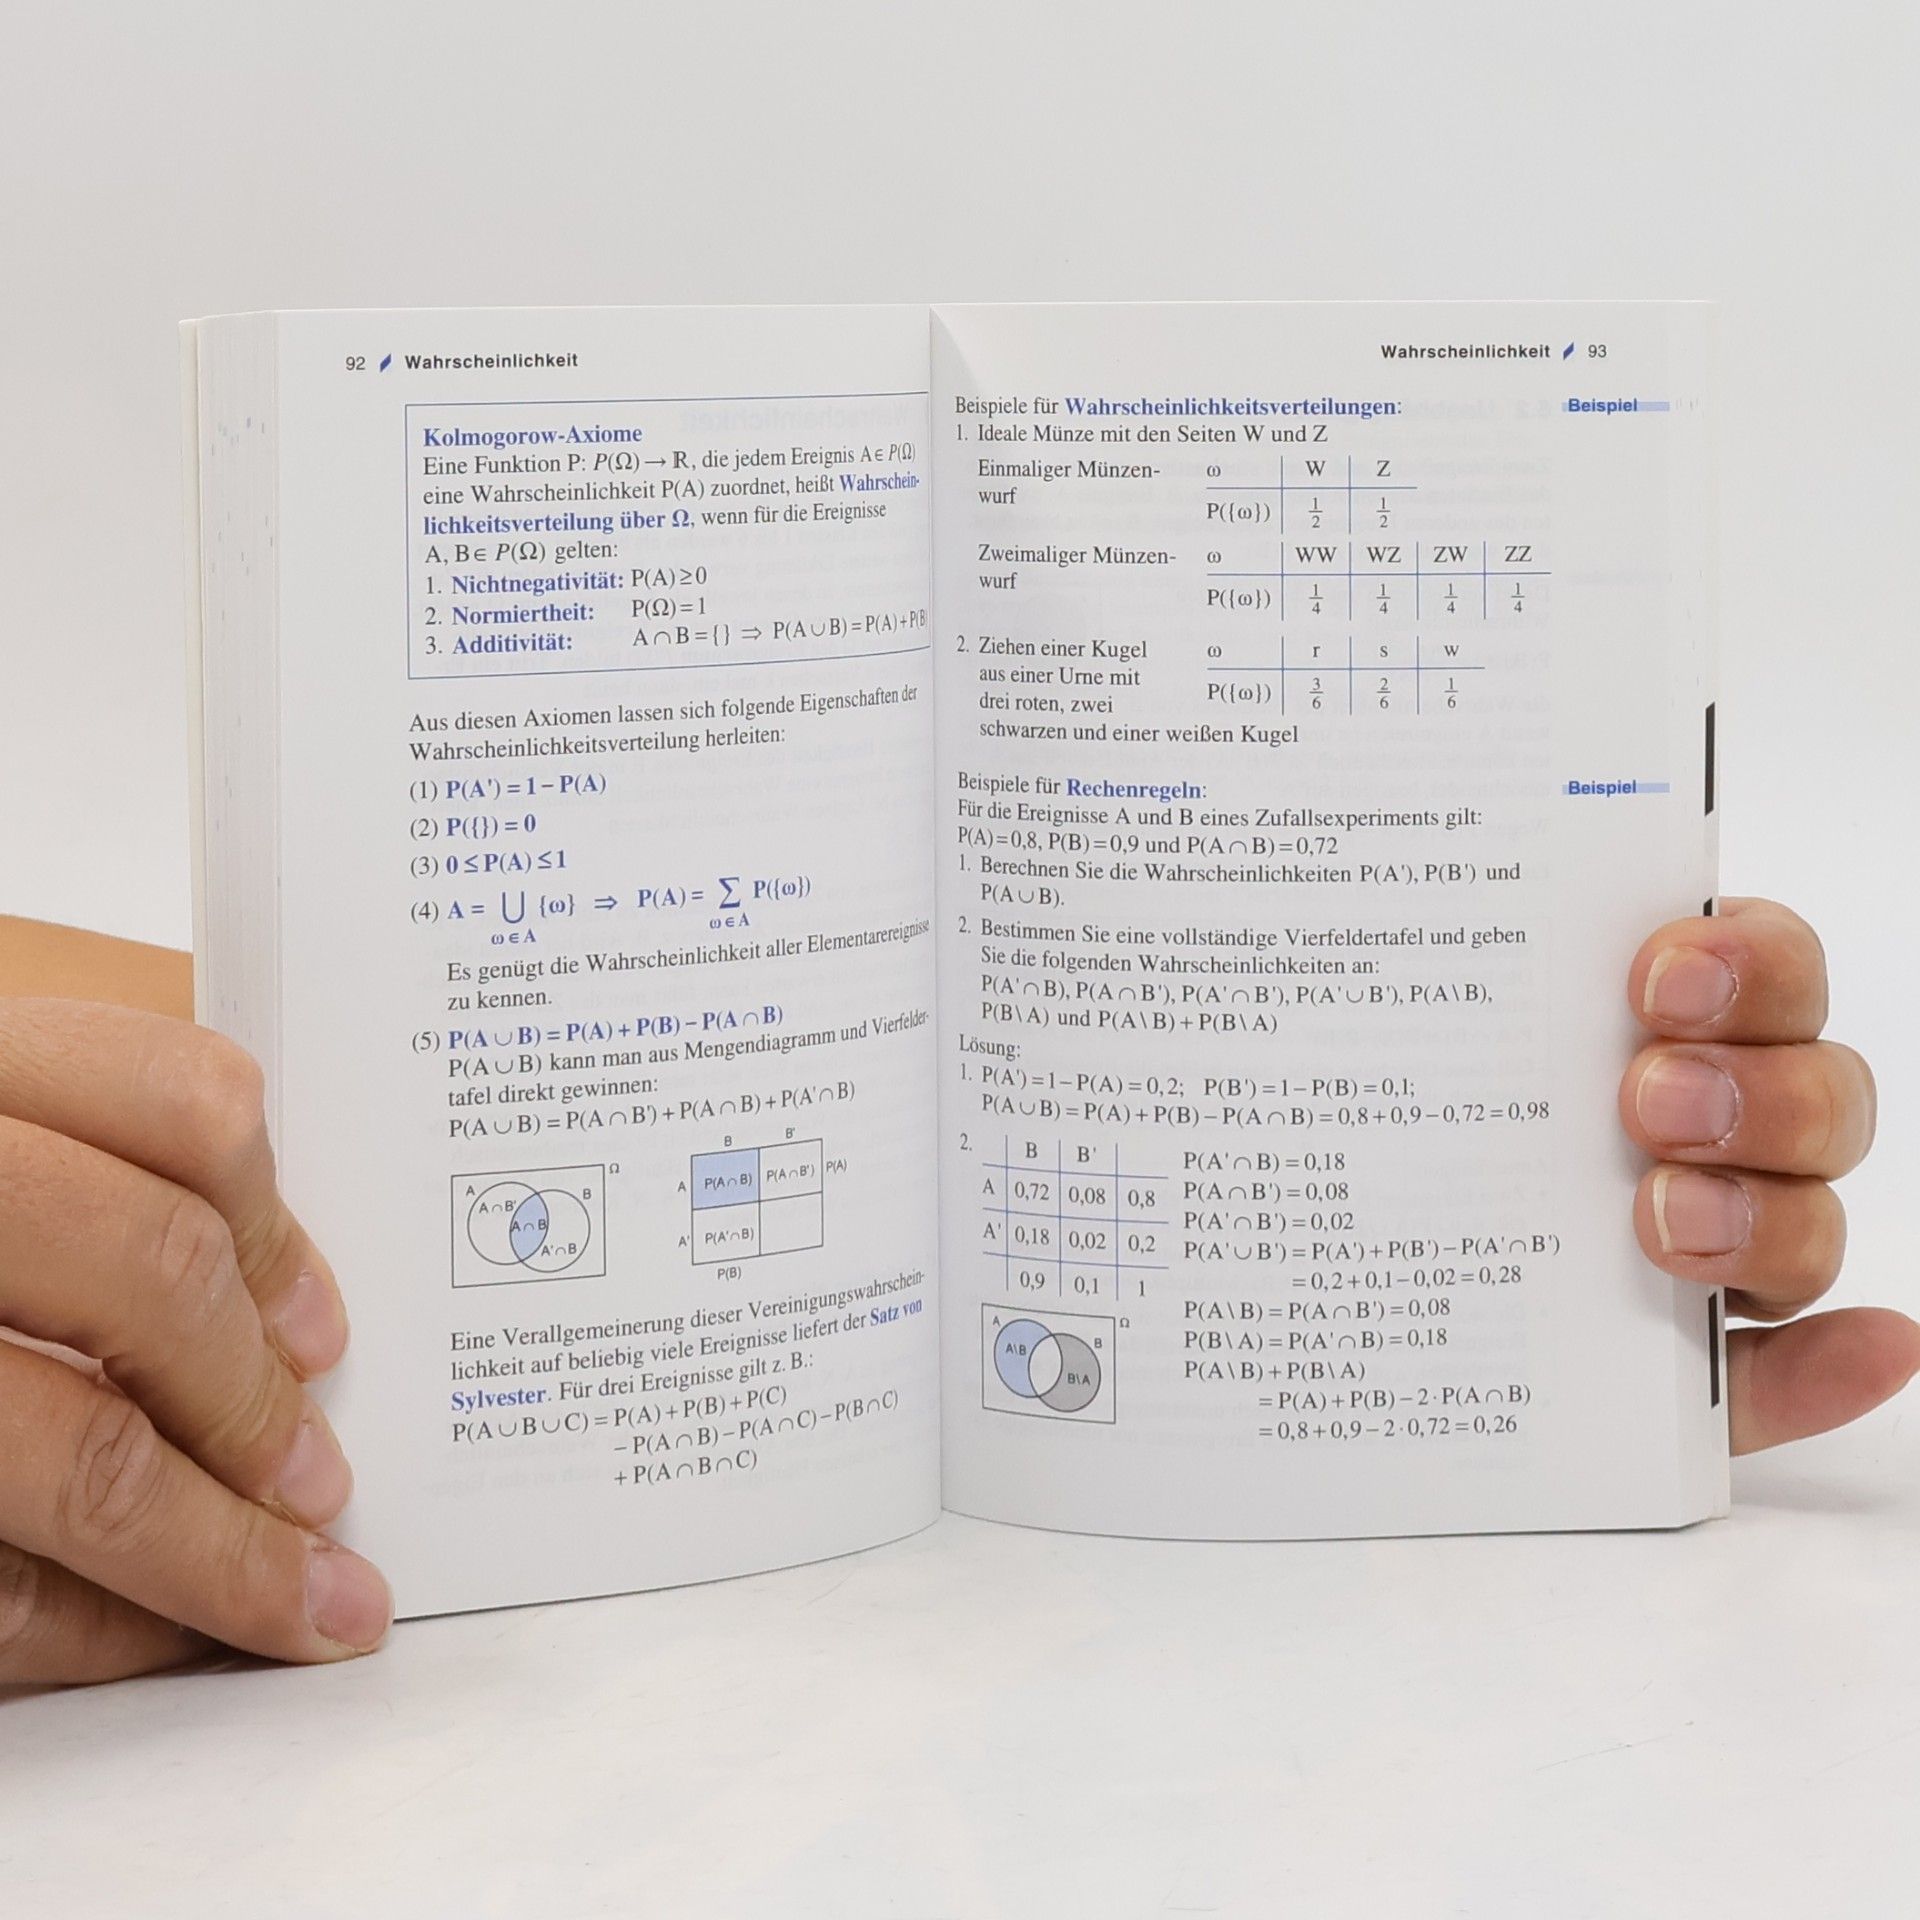 92 Wahrscheinlichkeit
Kolmogorow-Axiome
Eine Funktion P: P(Ω) → ℝ, die jedem Ereignis A ∈ P(Ω)
eine Wahrscheinlichkeit P(A) zuordnet, heißt Wahrschein-
lichkeitsverteilung über Ω, wenn für die Ereignisse
A, B ∈ P(Ω) gelten:
1. Nichtnegativität: P(A) ≥ 0
2. Normiertheit: P(Ω) = 1
3. Additivität: A ∩ B = {} ⇒ P(A ∪ B) = P(A) + P(B)
Aus diesen Axiomen lassen sich folgende Eigenschaften der
Wahrscheinlichkeitsverteilung herleiten:
(1) P(A') = 1 – P(A)
(2) P({}) = 0
(3) 0 ≤ P(A) ≤ 1
(4) A = ⋃ {ω} ⇒ P(A) = ∑ P({ω})
ω ∈ A ω ∈ A
Es genügt die Wahrscheinlichkeit aller Elementarereignisse
zu kennen.
(5) P(A ∪ B) = P(A) + P(B) – P(A ∩ B)
P(A ∪ B) kann man aus Mengendiagramm und Vierfelder-
tafel direkt gewinnen:
P(A ∪ B) = P(A ∩ B') + P(A ∩ B) + P(A' ∩ B)
Ω
A B
A∩B'
A∩B
A'∩B
B B'
A P(A∩B) P(A∩B') P(A)
A' P(A'∩B)
P(B)
Eine Verallgemeinerung dieser Vereinigungswahrschein-
lichkeit auf beliebig viele Ereignisse liefert der Satz von
Sylvester. Für drei Ereignisse gilt z. B.:
P(A ∪ B ∪ C) = P(A) + P(B) + P(C)
– P(A ∩ B) – P(A ∩ C) – P(B ∩ C)
+ P(A ∩ B ∩ C)
Wahrscheinlichkeit 93
Beispiele für Wahrscheinlichkeitsverteilungen: Beispiel
1. Ideale Münze mit den Seiten W und Z
Einmaliger Münzen- ω W Z
wurf P({ω}) 1/2 1/2
Zweimaliger Münzen- ω WW WZ ZW ZZ
wurf P({ω}) 1/4 1/4 1/4 1/4
2. Ziehen einer Kugel ω r s w
aus einer Urne mit P({ω}) 3/6 2/6 1/6
drei roten, zwei
schwarzen und einer weißen Kugel
Beispiele für Rechenregeln: Beispiel
Für die Ereignisse A und B eines Zufallsexperiments gilt:
P(A) = 0,8, P(B) = 0,9 und P(A ∩ B) = 0,72
1. Berechnen Sie die Wahrscheinlichkeiten P(A'), P(B') und
P(A ∪ B).
2. Bestimmen Sie eine vollständige Vierfeldertafel und geben
Sie die folgenden Wahrscheinlichkeiten an:
P(A' ∩ B), P(A ∩ B'), P(A' ∩ B'), P(A' ∪ B'), P(A \ B),
P(B \ A) und P(A \ B) + P(B \ A)
Lösung:
1. P(A') = 1 – P(A) = 0,2; P(B') = 1 – P(B) = 0,1;
P(A ∪ B) = P(A) + P(B) – P(A ∩ B) = 0,8 + 0,9 – 0,72 = 0,98
2. B B'
A 0,72 0,08 0,8
A' 0,18 0,02 0,2
0,9 0,1 1
P(A' ∩ B) = 0,18
P(A ∩ B') = 0,08
P(A' ∩ B') = 0,02
P(A' ∪ B') = P(A') + P(B') – P(A' ∩ B')
= 0,2 + 0,1 – 0,02 = 0,28
P(A \ B) = P(A ∩ B') = 0,08
P(B \ A) = P(A' ∩ B) = 0,18
P(A \ B) + P(B \ A)
= P(A) + P(B) – 2 · P(A ∩ B)
= 0,8 + 0,9 – 2 · 0,72 = 0,26
Ω
A B
A\B
B\A